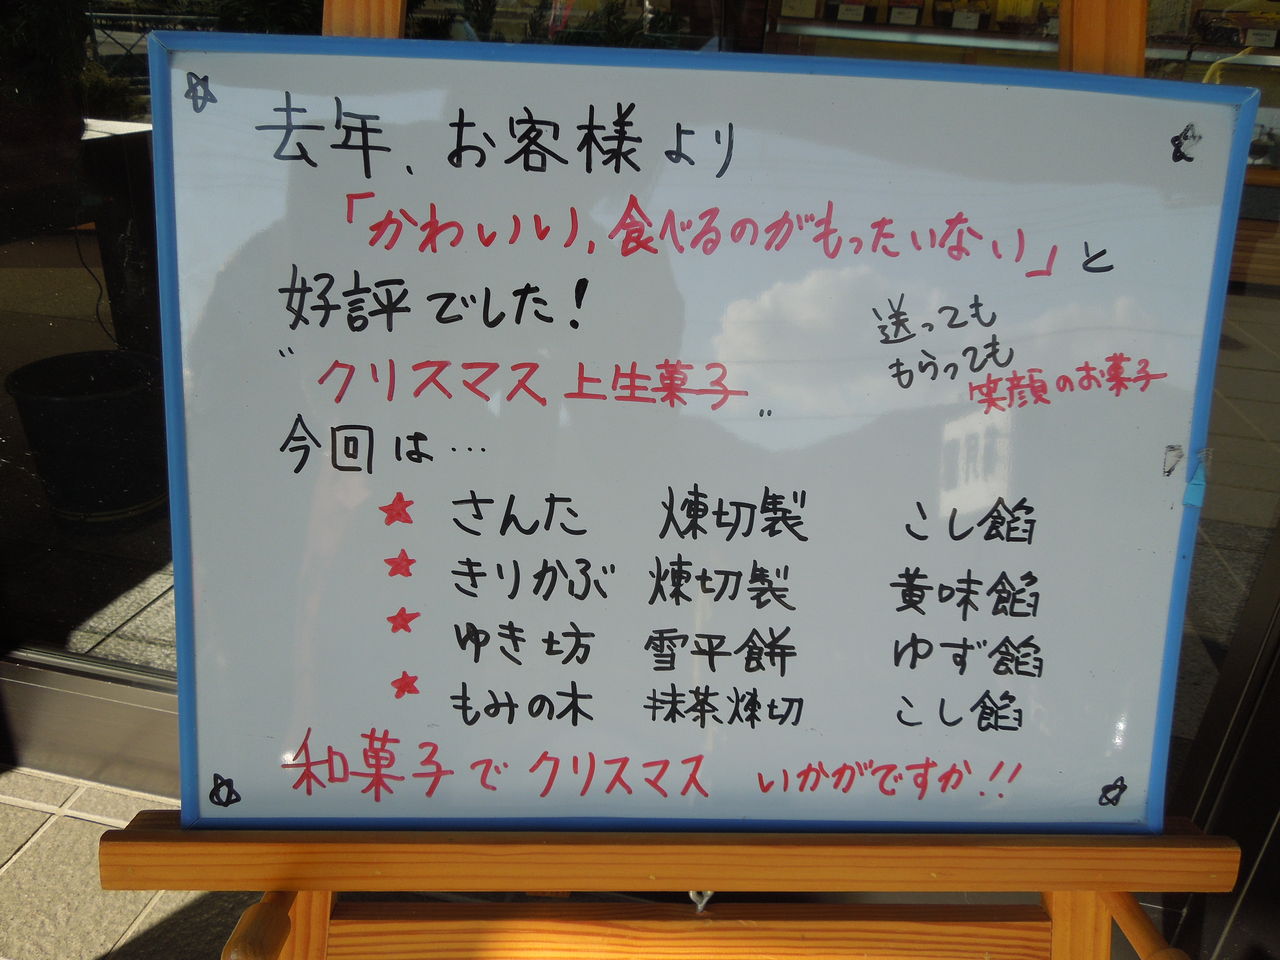 去年、お客様より
「かわいい、食べるのがもったいない」と
好評でした!
"クリスマス上生菓子"
送っても
もらっても
笑顔のお菓子
今回は…
★ さんた 煉切製 こし餡
★ きりかぶ 煉切製 黄味餡
★ ゆき坊 雪平餅 ゆず餡
★ もみの木 抹茶煉切 こし餡
和菓子でクリスマス いかがですか!!